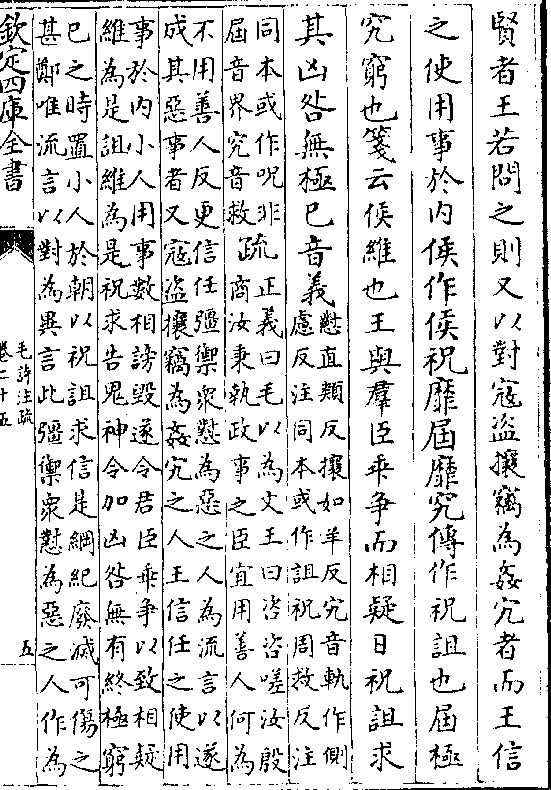 賢者王若問之則又以對寇盜攘竊為姦宄者而王信
之使用事於內侯作侯祝靡届靡究傳作祝詛也届極
究窮也箋云侯維也王與羣臣乖爭而相疑日祝詛求
其凶咎無極已音義懟直類反攘如羊反宄音軌作側
慮反注同本或作詛祝周救反注
同本或作呪非
届音界究音救疏正義曰毛以為文王曰咨咨嗟汝殷
商汝秉執政事之臣宜用善人何為
不用善人反更信任彊禦衆懟為惡之人為流言以遂
成其惡事者又寇盜攘竊為姦宄之人王信任之使用
事於內小人用事數相謗毀遂令君臣乖爭以致相疑
維為是詛維為是祝求告鬼神令加凶咎無有終極窮
已之時置小人於朝以祝詛求信是綱紀廢滅可傷之
甚鄭唯流言以對為異言此彊禦衆懟為惡之人作為
欽定四庫全書
毛詩注疏
卷二十五
五